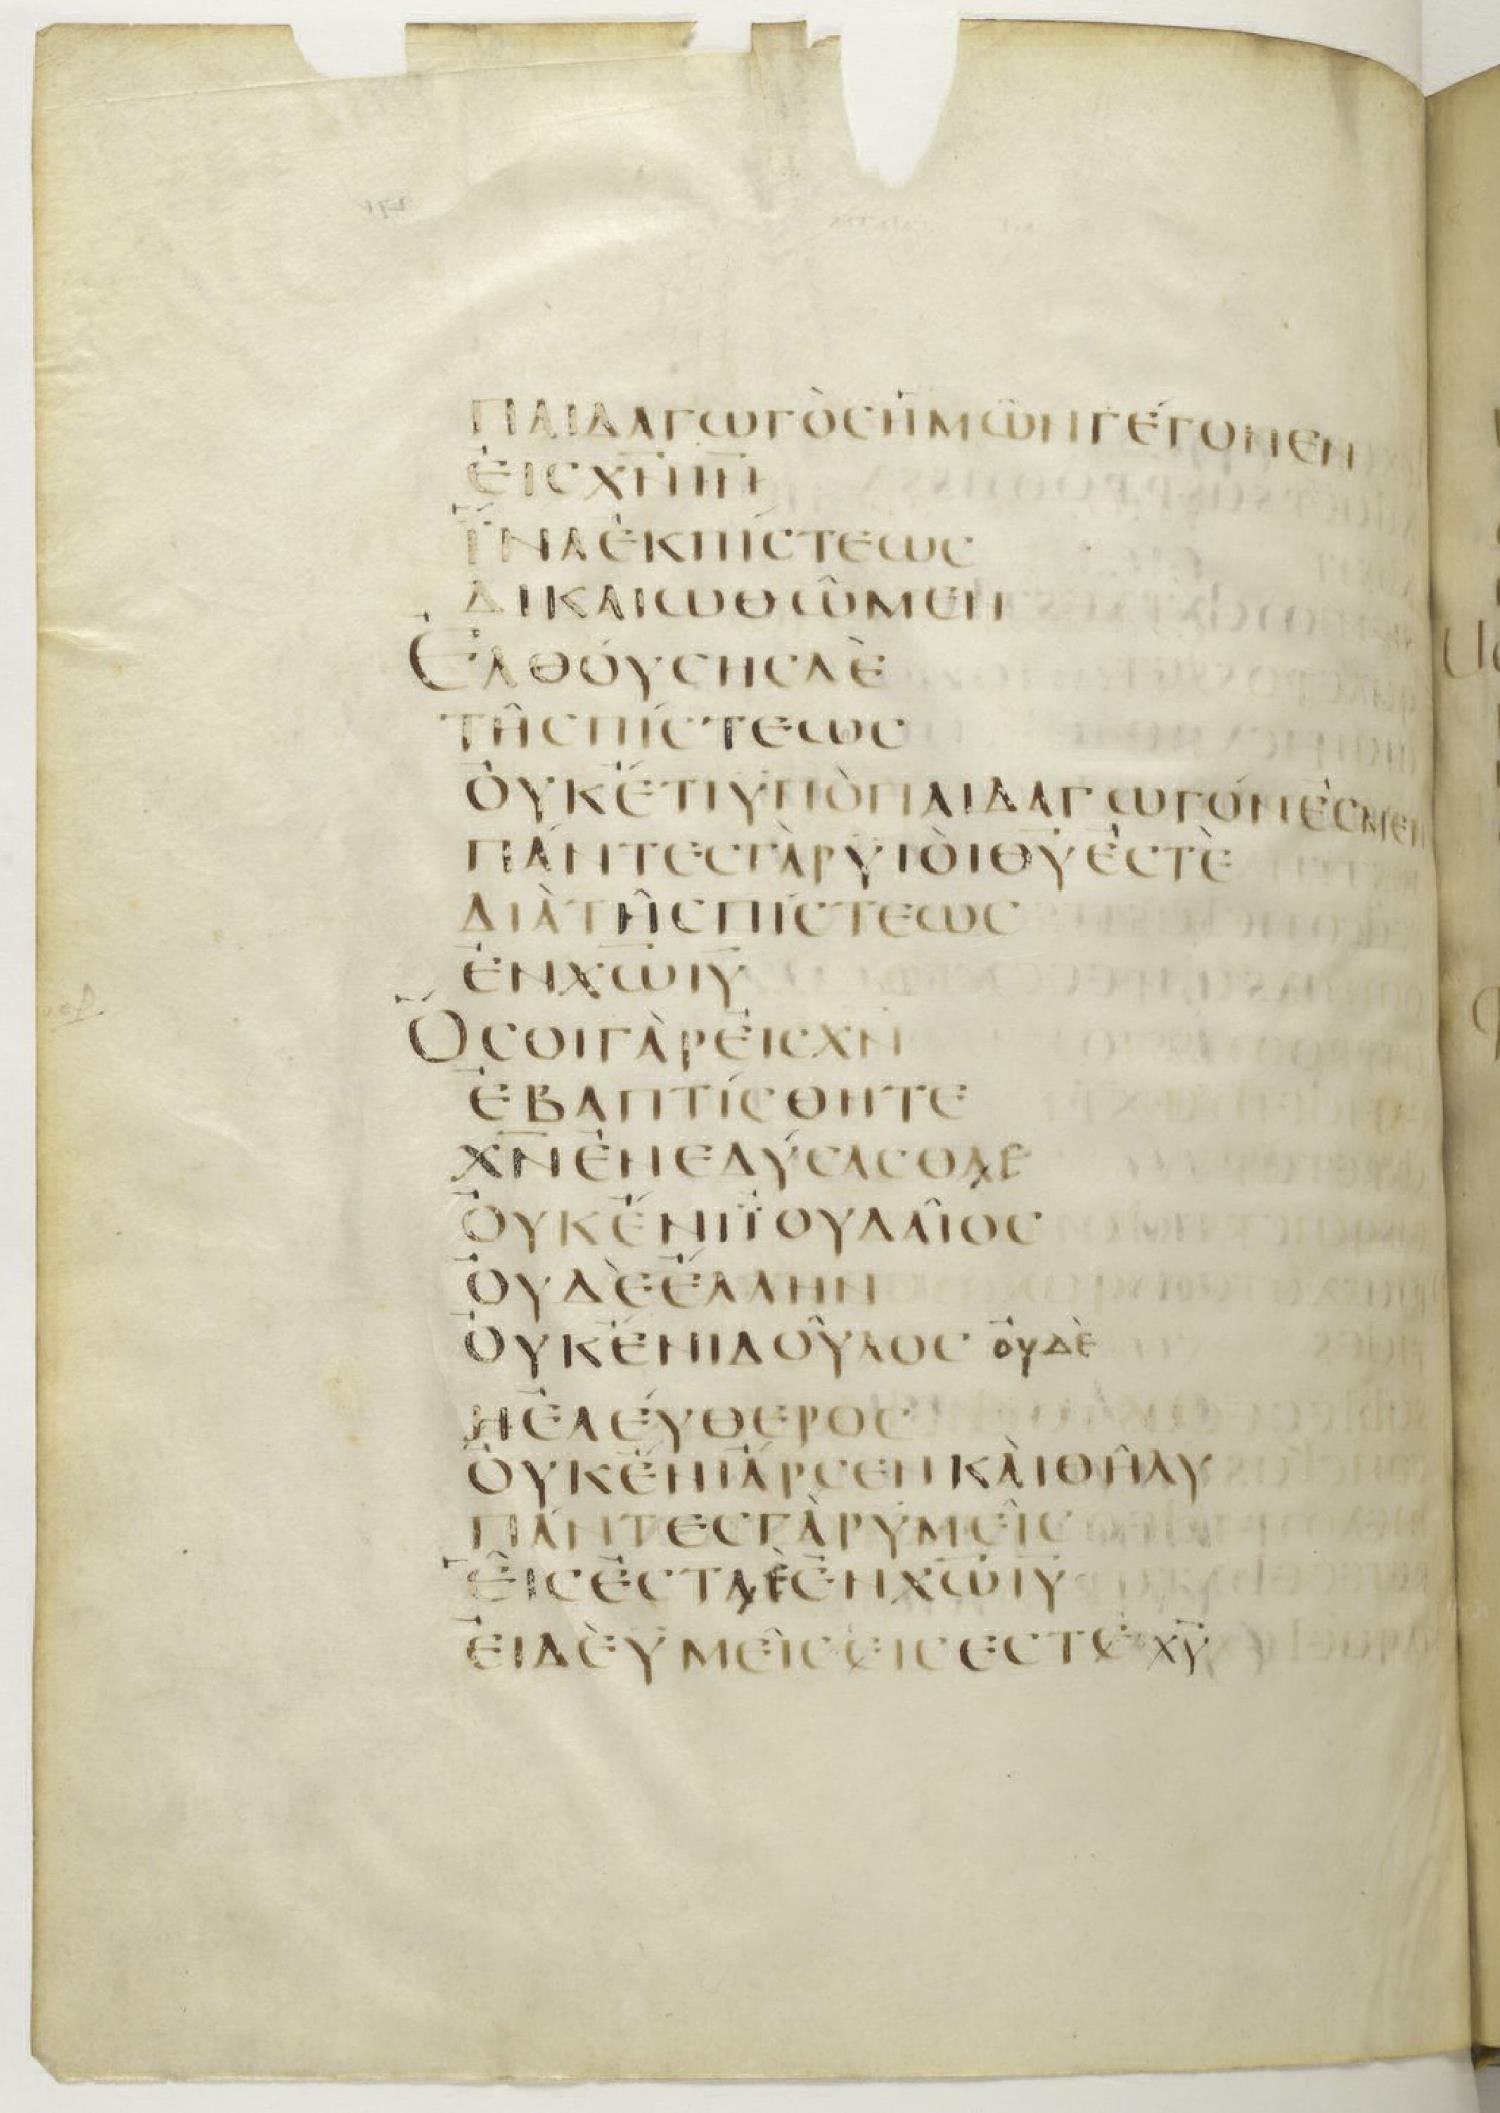 ΠΑΙΔΑΓωΓὸϹἩΜῶΝΓΈΓΟΝΕΝ
ἐΙϹΧ̅Ν̅Ι̅Ν̅
ἽΝΑἐΚΠΊϹΤΕωϹ
ΔΙΚΑΙωΘῶΜΕΝ
ἘΛΘΌΥϹΗϹΔῈ
ΤΗ͂ϹΠΊϹΤΕωϹ
ὈΥΚΈΤΙΥΠῸΠΑΙΔΑΓωΓΌΝἘϹΜΕΝ
ΠΆΝΤΕϹΓᾺΡΥΙῸΙΘ̅Υ̅ἘϹΤῈ
ΔΙᾺΤΗ͂ϹΠΊϹΤΕωϹ
ἘΝΧ̅ω̅Ι̅Υ̅
ὍϹΟΙΓᾺΡἘΙϹΧ̅Ν̅
ἘΒΑΠΤΊϹΘΗΤΕ
Χ̅Ν̅ἘΝΕΔΎϹΑϹΘΑΕ
ὈΥΚἜΝΙΪΟΥΔΑΙ͂ΟϹ
ὈΥΔῈἝΛΛΗΝ
ὈΥΚἜΝΙΔΟΥ͂ΛΟϹ ὀυδὲ
ΗἘΛΕΎΘΕΡΟϹ
ὈΥΚἜΝΙἌΡϹΕΝΚᾺΙΘΗ͂ΛΥ
ΠΆΝΤΕϹΓᾺΡΥΜΕΙ͂Ϲ
ἙΙϹἘϹΤΑΙἘΝΧ̅ω̅Ι̅Υ̅
ἘΙΔῈΥΜΕΙ͂ϹΕΙϹΕϹΤΕΧ̅Υ̅